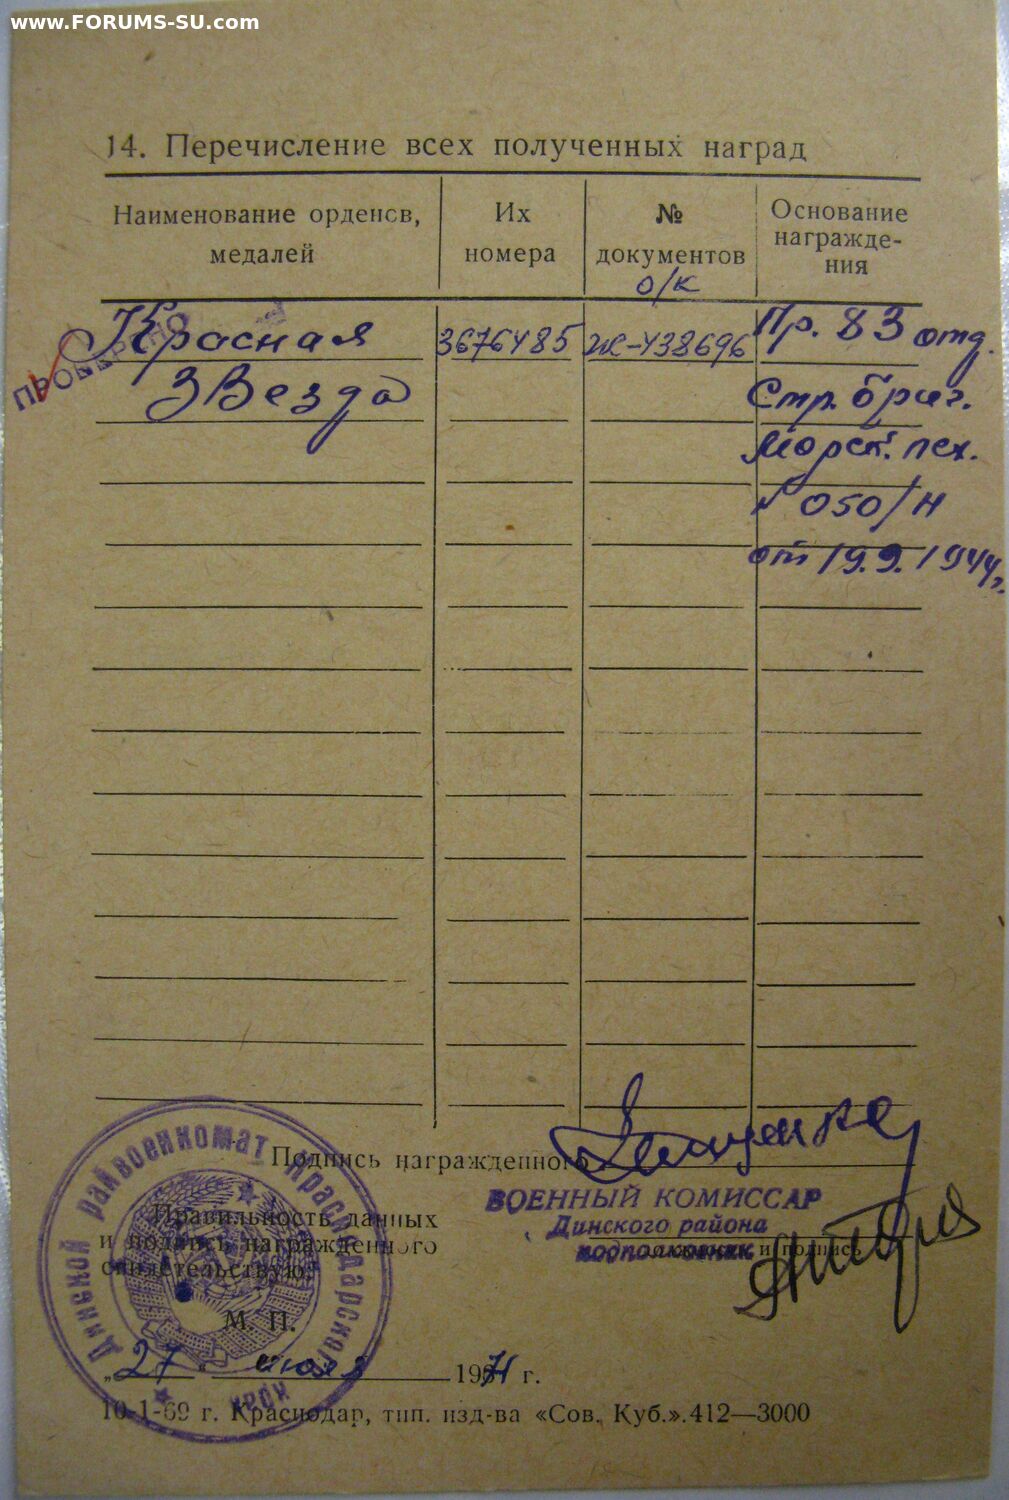 www.FORUMS-SU.com
14. Перечисление всех полученных наград
Наименование орденов, медалей
Их номера
№ документов
о/к
Основание награжде-
ния
ПРОВЕРЕНО
Красная
Звезда
3676485
Ж-438696
Пр. 83 отд.
Стр. бриг.
Морск. пех.
№ 050/Н
от 19.9.1944г.
Подпись награжденного
Правильность данных
и подпись награжденного
свидетельствую.
ВОЕННЫЙ КОМИССАР
Динского района
подполковник
и подпись
М. П.
Динской райвоенкомат Краснодарский
"27" июля 1971 г.
10-1-69 г. Краснодар, тип. изд-ва «Сов. Куб.».412—3000